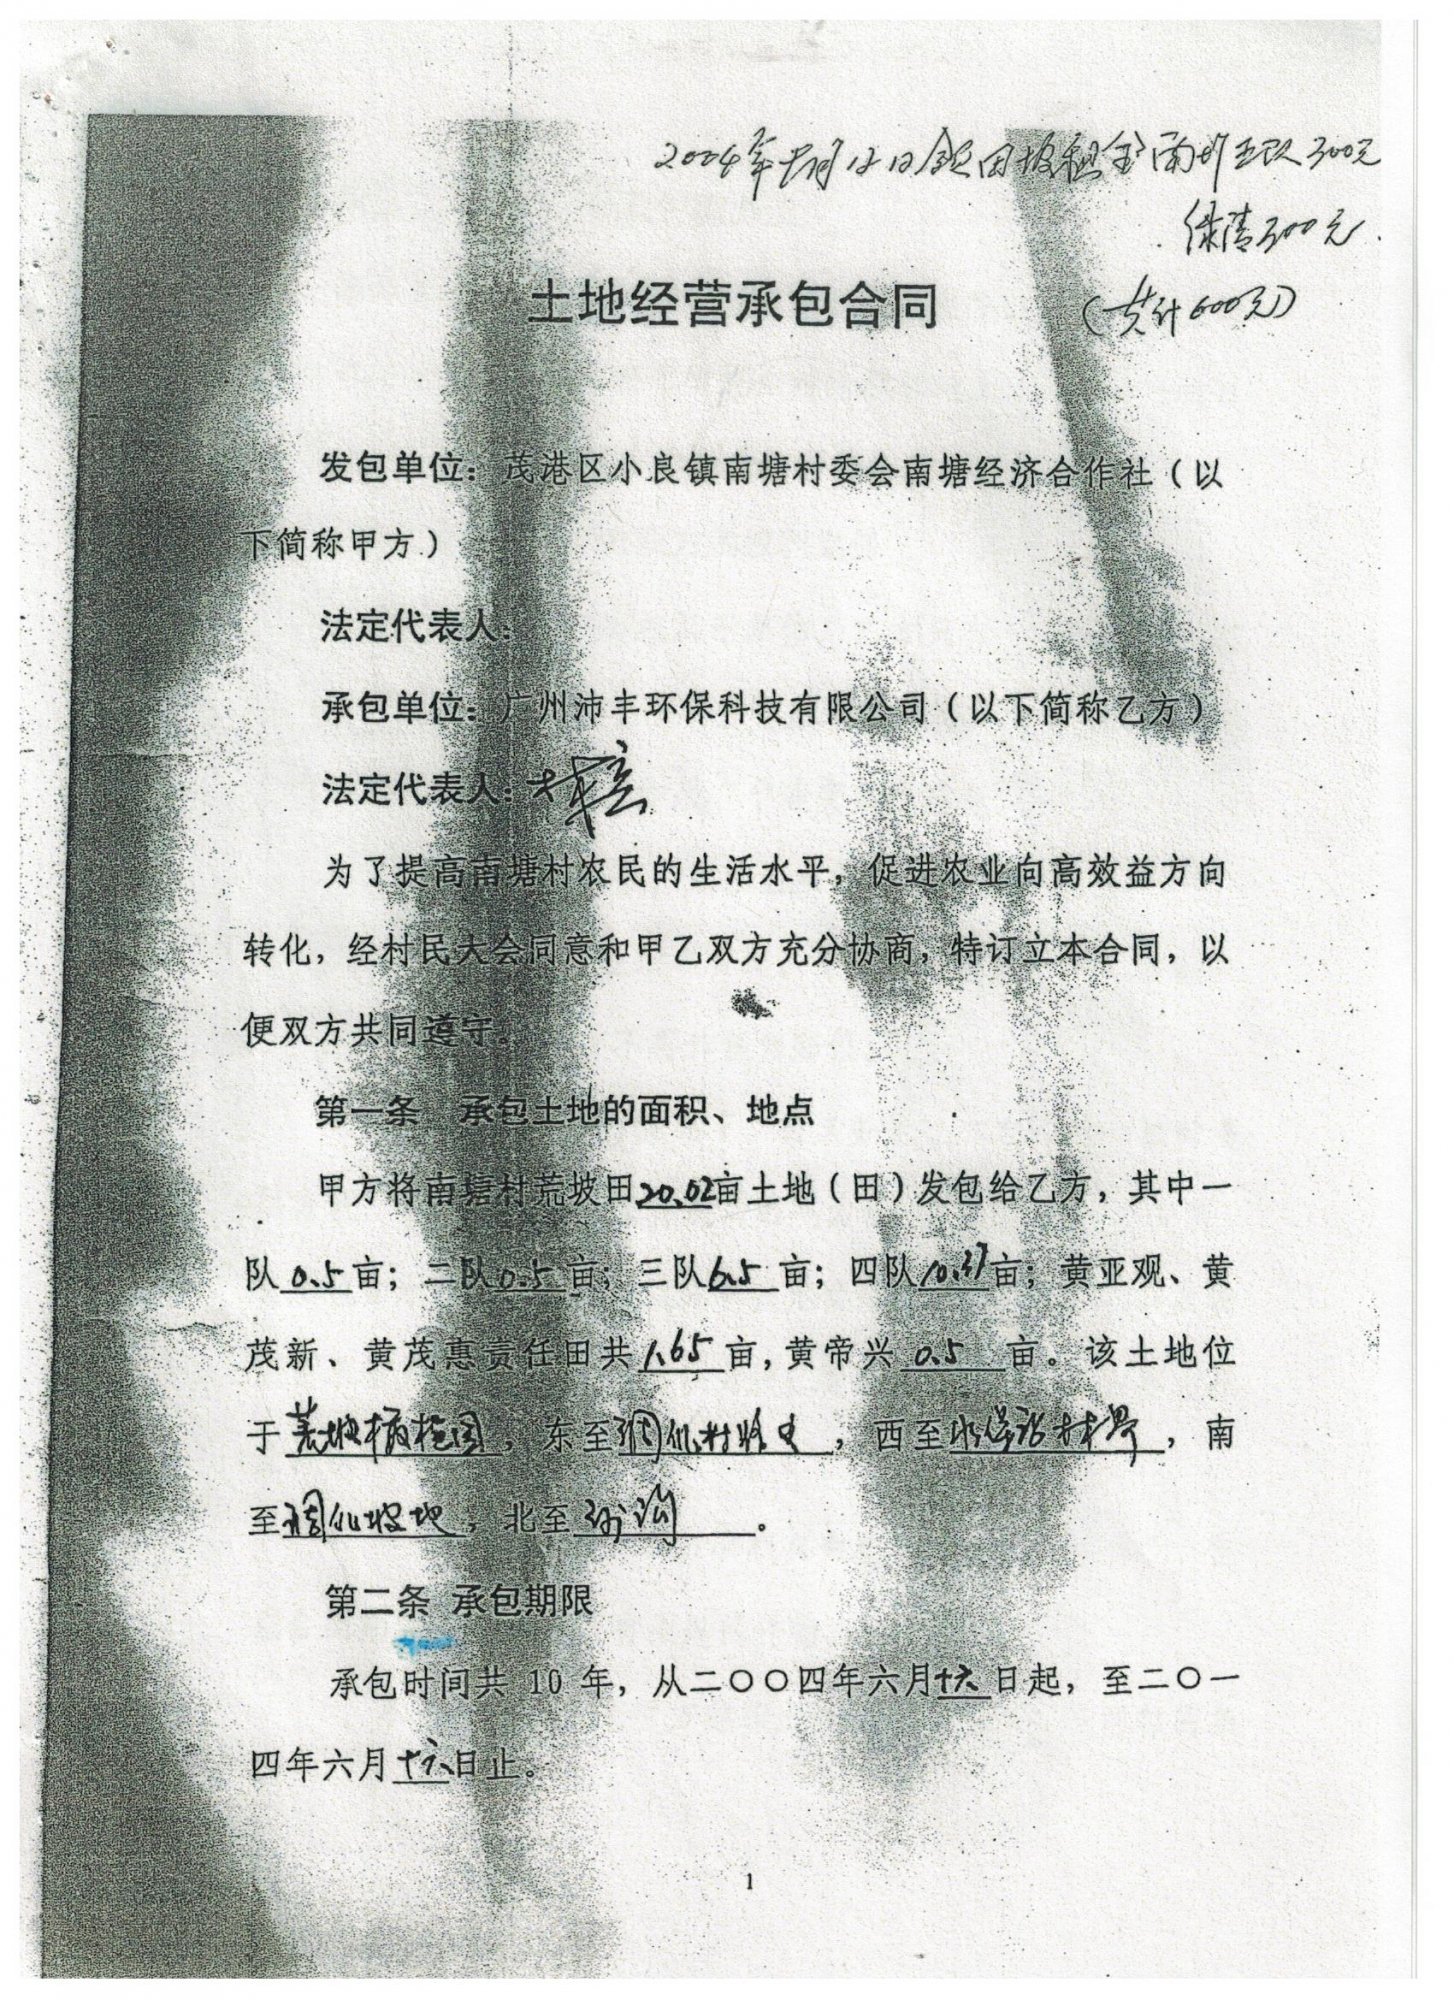 2004年 月12日领田坡租金 300元
绿清300元
(共计600元)
土地经营承包合同
发包单位：茂港区小良镇南塘村委会南塘经济合作社（以
下简称甲方）
法定代表人：
承包单位：广州沛丰环保科技有限公司（以下简称乙方）
法定代表人：
为了提高南塘村农民的生活水平，促进农业向高效益方向
转化，经村民大会同意和甲乙双方充分协商，特订立本合同，以
便双方共同遵守。
第一条 承包土地的面积、地点
甲方将南塘村荒坡田20.02亩土地（田）发包给乙方，其中一
队0.5亩；二队0.5亩；三队6.5亩；四队10.37亩；黄亚观、黄
茂新、黄茂惠责任田共1.65亩,黄帝兴0.5亩。该土地位
于 ，东至 ，西至 ，南
至 坡地，北至 沟。
第二条 承包期限
承包时间共 10 年，从二〇〇四年六月十六日起，至二〇一
四年六月十六日止。
1